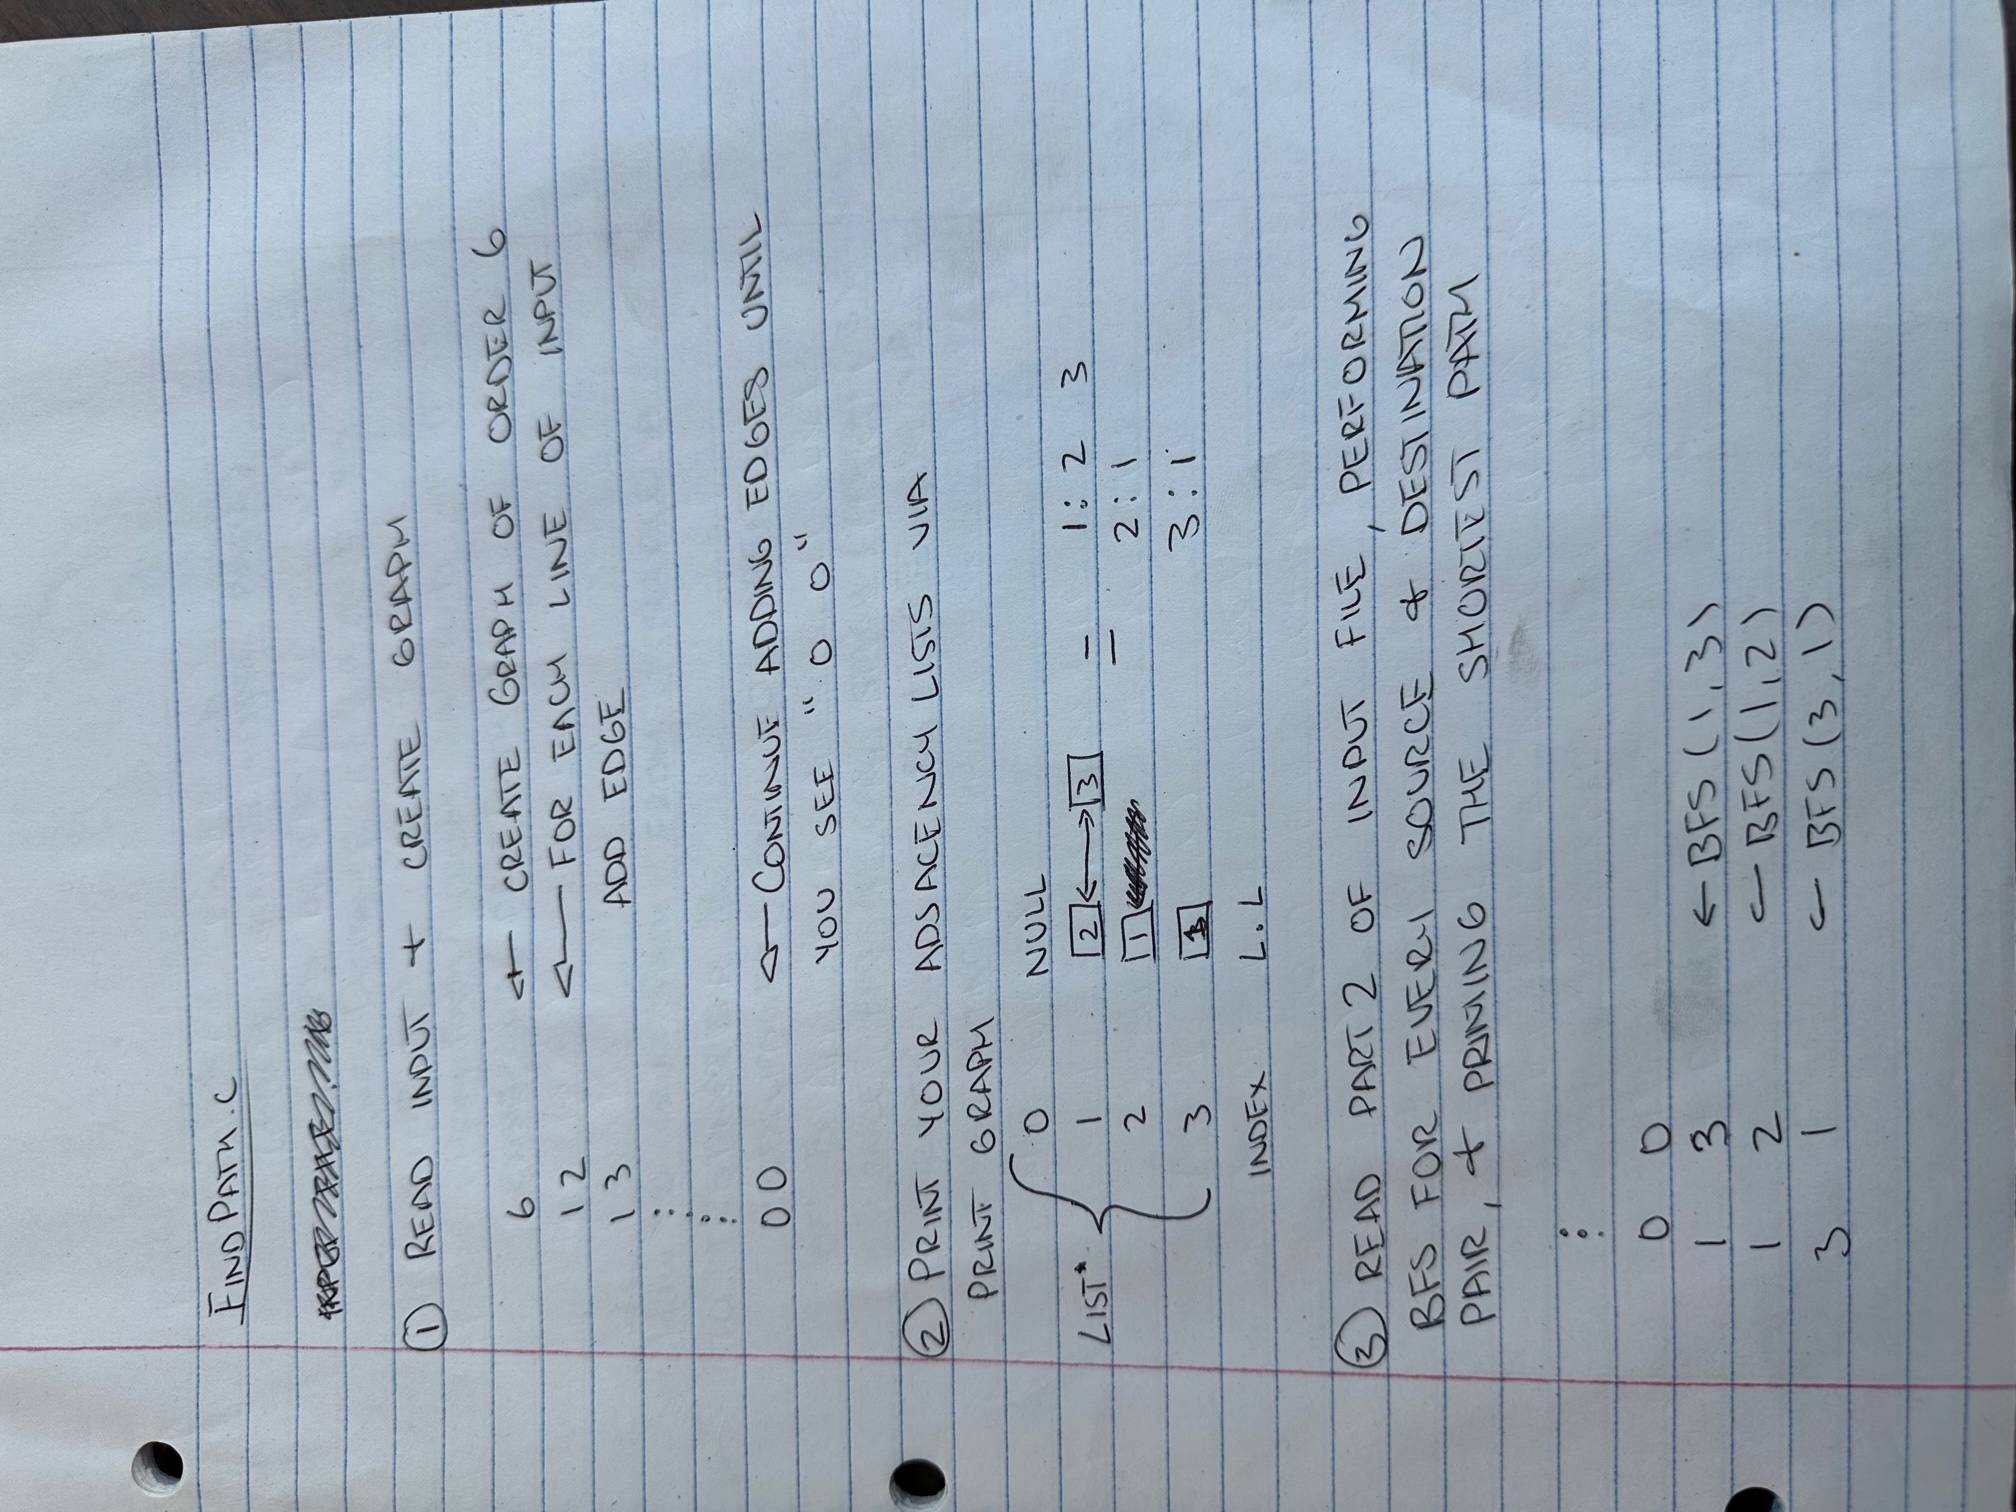 FINDPATH.C
① READ INPUT + CREATE GRAPH
6 ← CREATE GRAPH OF ORDER 6
1 2 ← FOR EACH LINE OF INPUT
1 3 ADD EDGE
⋮
⋮
0 0 ← CONTINUE ADDING EDGES UNTIL
YOU SEE "0 0"
② PRINT YOUR ADJACENCY LISTS VIA
PRINT GRAPH
0 NULL
LIST* { 1 2 ↔ 3 = 1: 2 3
2 1 2: 1
3 1 3: 1
INDEX L.L
③ READ PART 2 OF INPUT FILE, PERFORMING
BFS FOR EVERY SOURCE & DESTINATION
PAIR, + PRINTING THE SHORTEST PATH
⋮
0 0
1 3 ← BFS (1,3)
1 2 ← BFS(1,2)
3 1 ← BFS (3,1)